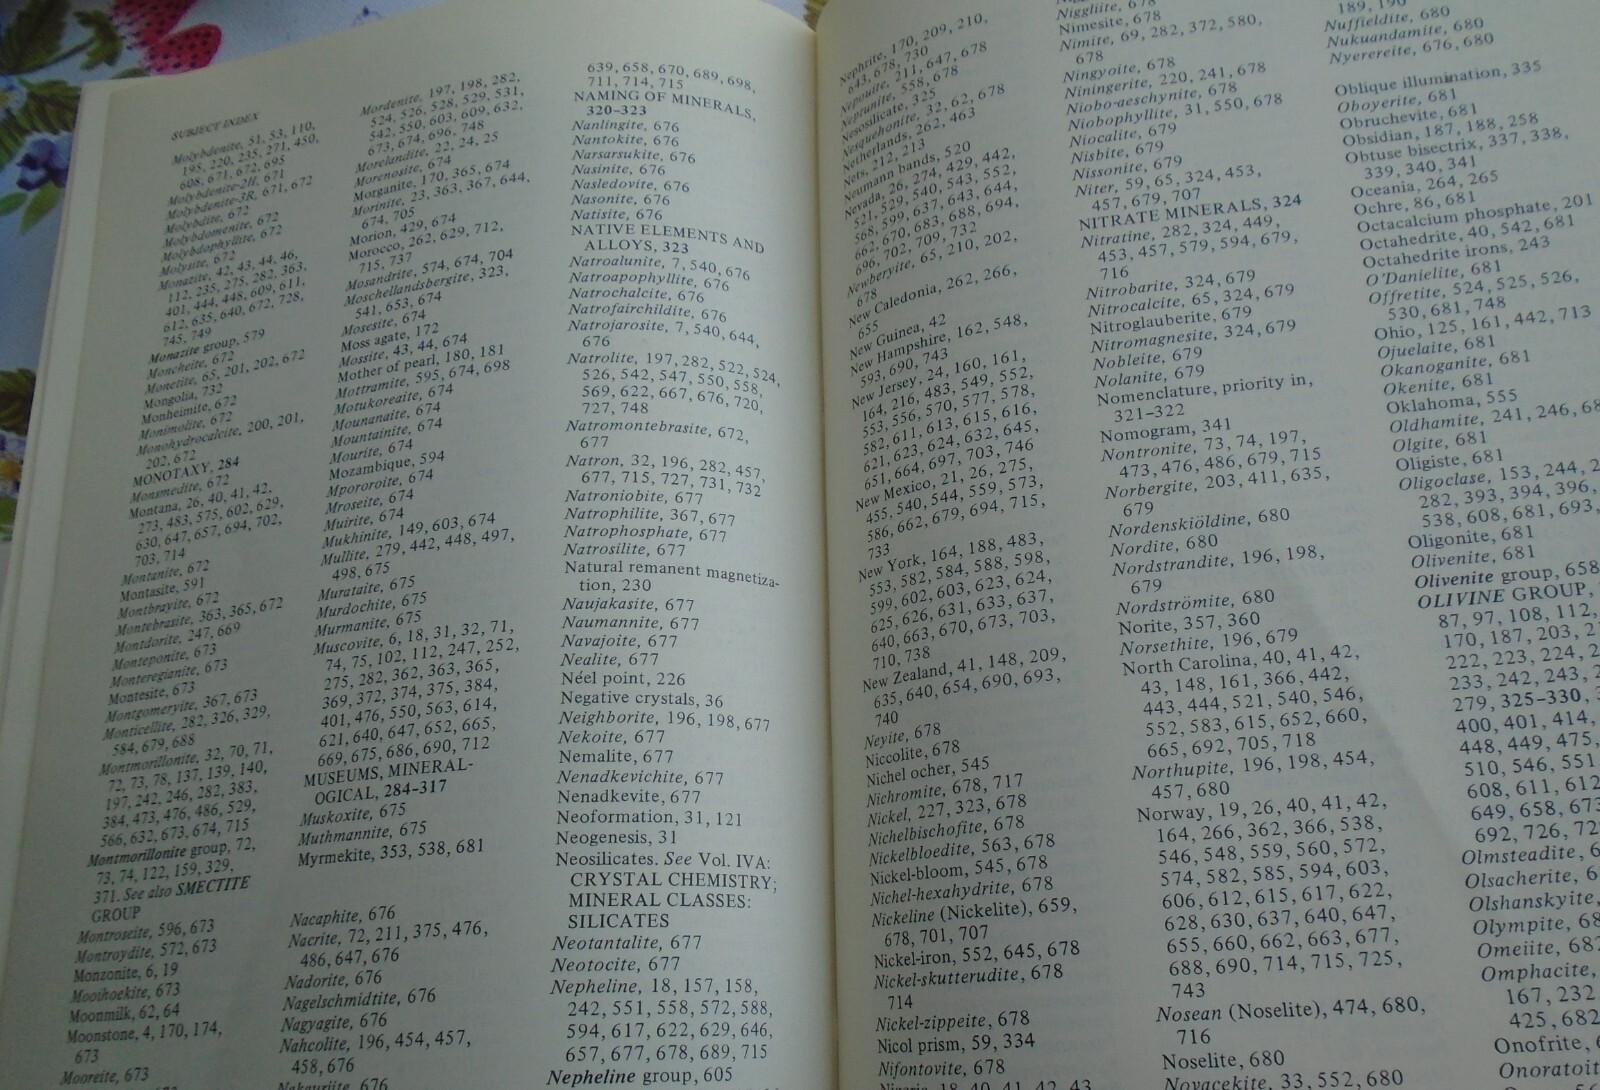 SUBJECT INDEX
Molybdenite, 51, 53, 110,
195, 220, 235, 271, 450,
608, 671, 672, 695
Molybdenite-2H, 671
Molybdenite-3R, 671, 672
Molybdite, 672
Molybdomenite, 672
Molybdophyllite, 672
Molysite, 672
Monazite, 42, 43, 44, 46,
112, 235, 275, 282, 363,
401, 444, 448, 609, 611,
612, 635, 640, 672, 728,
745, 749
Monazite group, 579
Moncheite, 672
Monetite, 65, 201, 202, 672
Mongolia, 732
Monheimite, 672
Monimolite, 672
Monohydrocalcite, 200, 201,
202, 672
MONOTAXY, 284
Monsmedite, 672
Montana, 26, 40, 41, 42,
273, 483, 575, 602, 629,
630, 647, 657, 694, 702,
703, 714
Montanite, 672
Montasite, 591
Montbrayite, 672
Montebrasite, 363, 365, 672
Montdorite, 247, 669
Monteponite, 673
Monteregianite, 673
Montesite, 673
Montgomeryite, 367, 673
Monticellite, 282, 326, 329,
584, 679, 688
Montmorillonite, 32, 70, 71,
72, 73, 78, 137, 139, 140,
197, 242, 246, 282, 383,
384, 473, 476, 486, 529,
566, 632, 673, 674, 715
Montmorillonite group, 72,
73, 74, 122, 159, 329,
371. See also SMECTITE
GROUP
Montroseite, 596, 673
Montroydite, 572, 673
Monzonite, 6, 19
Mooihoekite, 673
Moonmilk, 62, 64
Moonstone, 4, 170, 174,
673
Mooreite, 673
Mordenite, 197, 198, 282,
524, 526, 528, 529, 531,
542, 550, 603, 609, 632,
673, 674, 696, 748
Morelandite, 22, 24, 25
Morenosite, 674
Morganite, 170, 365, 674
Morinite, 23, 363, 367, 644,
674, 705
Morion, 429, 674
Morocco, 262, 629, 712,
715, 737
Mosandrite, 574, 674, 704
Moschellandsbergite, 323,
541, 653, 674
Mosesite, 674
Moss agate, 172
Mossite, 43, 44, 674
Mother of pearl, 180, 181
Mottramite, 595, 674, 698
Motukoreaite, 674
Mounanaite, 674
Mountainite, 674
Mourite, 674
Mozambique, 594
Mpororoite, 674
Mroseite, 674
Muirite, 674
Mukhinite, 149, 603, 674
Mullite, 279, 442, 448, 497,
498, 675
Murataite, 675
Murdochite, 675
Murmanite, 675
Muscovite, 6, 18, 31, 32, 71,
74, 75, 102, 112, 247, 252,
275, 282, 362, 363, 365,
369, 372, 374, 375, 384,
401, 476, 550, 563, 614,
621, 640, 647, 652, 665,
669, 675, 686, 690, 712
MUSEUMS, MINERAL-
OGICAL, 284-317
Muskoxite, 675
Muthmannite, 675
Myrmekite, 353, 538, 681
Nacaphite, 676
Nacrite, 72, 211, 375, 476,
486, 647, 676
Nadorite, 676
Nagelschmidtite, 676
Nagyagite, 676
Nahcolite, 196, 454, 457,
458, 676
Nakauriite, 676
639, 658, 670, 689, 698,
711, 714, 715
NAMING OF MINERALS,
320-323
Nanlingite, 676
Nantokite, 676
Narsarsukite, 676
Nasinite, 676
Nasledovite, 676
Nasonite, 676
Natisite, 676
NATIVE ELEMENTS AND
ALLOYS, 323
Natroalunite, 7, 540, 676
Natroapophyllite, 676
Natrochalcite, 676
Natrofairchildite, 676
Natrojarosite, 7, 540, 644,
676
Natrolite, 197, 282, 522, 524,
526, 542, 547, 550, 558,
569, 622, 667, 676, 720,
727, 748
Natromontebrasite, 672,
677
Natron, 32, 196, 282, 457,
677, 715, 727, 731, 732
Natroniobite, 677
Natrophilite, 367, 677
Natrophosphate, 677
Natrosilite, 677
Natural remanent magnetiza-
tion, 230
Naujakasite, 677
Naumannite, 677
Navajoite, 677
Nealite, 677
Néel point, 226
Negative crystals, 36
Neighborite, 196, 198, 677
Nekoite, 677
Nemalite, 677
Nenadkevichite, 677
Nenadkevite, 677
Neoformation, 31, 121
Neogenesis, 31
Neosilicates. See Vol. IVA:
CRYSTAL CHEMISTRY;
MINERAL CLASSES:
SILICATES
Neotantalite, 677
Neotocite, 677
Nepheline, 18, 157, 158,
242, 551, 558, 572, 588,
594, 617, 622, 629, 646,
657, 677, 678, 689, 715
Nepheline group, 605
Nephrite, 170, 209, 210,
643, 678, 730
Nepouite, 211, 647, 678
Neptunite, 558, 678
Nesosilicate, 325
Nesquehonite, 32, 62, 678
Netherlands, 262, 463
Nets, 212, 213
Neumann bands, 520
Nevada, 26, 274, 429, 442,
521, 529, 540, 543, 552,
568, 599, 637, 643, 644,
662, 670, 683, 688, 694,
696, 702, 709, 732
Newberyite, 65, 210, 202,
678
New Caledonia, 262, 266,
655
New Guinea, 42
New Hampshire, 162, 548,
593, 690, 743
New Jersey, 24, 160, 161,
164, 216, 483, 549, 552,
553, 556, 570, 577, 578,
582, 611, 613, 615, 616,
621, 623, 624, 632, 645,
651, 664, 697, 703, 746
New Mexico, 21, 26, 275,
455, 540, 544, 559, 573,
586, 662, 679, 694, 715,
733
New York, 164, 188, 483,
553, 582, 584, 588, 598,
599, 602, 603, 623, 624,
625, 626, 631, 633, 637,
640, 663, 670, 673, 703,
710, 738
New Zealand, 41, 148, 209,
635, 640, 654, 690, 693,
740
Neyite, 678
Niccolite, 678
Nichel ocher, 545
Nichromite, 678, 717
Nickel, 227, 323, 678
Nichelbischofite, 678
Nickelbloedite, 563, 678
Nickel-bloom, 545, 678
Nichel-hexahydrite, 678
Nickeline (Nickelite), 659,
678, 701, 707
Nickel-iron, 552, 645, 678
Nickel-skutterudite, 678
714
Nickel-zippeite, 678
Nicol prism, 59, 334
Nifontovite, 678
Nigeria, 18, 40, 41, 42, 43
Niggliite, 678
Nimesite, 678
Nimite, 69, 282, 372, 580,
678
Ningyoite, 678
Niningerite, 220, 241, 678
Niobo-aeschynite, 678
Niobophyllite, 31, 550, 678
Niocalite, 679
Nisbite, 679
Nissonite, 679
Niter, 59, 65, 324, 453,
457, 679, 707
NITRATE MINERALS, 324
Nitratine, 282, 324, 449,
453, 457, 579, 594, 679,
716
Nitrobarite, 324, 679
Nitrocalcite, 65, 324, 679
Nitroglauberite, 679
Nitromagnesite, 324, 679
Nobleite, 679
Nolanite, 679
Nomenclature, priority in,
321-322
Nomogram, 341
Nontronite, 73, 74, 197,
473, 476, 486, 679, 715
Norbergite, 203, 411, 635,
679
Nordenskiöldine, 680
Nordite, 680
Nordstrandite, 196, 198,
679
Nordströmite, 680
Norite, 357, 360
Norsethite, 196, 679
North Carolina, 40, 41, 42,
43, 148, 161, 366, 442,
443, 444, 521, 540, 546,
552, 583, 615, 652, 660,
665, 692, 705, 718
Northupite, 196, 198, 454,
457, 680
Norway, 19, 26, 40, 41, 42,
164, 266, 362, 366, 538,
546, 548, 559, 560, 572,
574, 582, 585, 594, 603,
606, 612, 615, 617, 622,
628, 630, 637, 640, 647,
655, 660, 662, 663, 677,
688, 690, 714, 715, 725,
743
Nosean (Noselite), 474, 680,
716
Noselite, 680
Novacekite, 33, 552, 680
189, 190
Nuffieldite, 680
Nukuandamite, 680
Nyerereite, 676, 680
Oblique illumination, 335
Oboyerite, 681
Obruchevite, 681
Obsidian, 187, 188, 258
Obtuse bisectrix, 337, 338,
339, 340, 341
Oceania, 264, 265
Ochre, 86, 681
Octacalcium phosphate, 201
Octahedrite, 40, 542, 681
Octahedrite irons, 243
O'Danielite, 681
Offretite, 524, 525, 526,
530, 681, 748
Ohio, 125, 161, 442, 713
Ojuelaite, 681
Okanoganite, 681
Okenite, 681
Oklahoma, 555
Oldhamite, 241, 246,
Olgite, 681
Oligiste, 681
Oligoclase, 153, 244,
282, 393, 394, 396,
538, 608, 681, 693,
Oligonite, 681
Olivenite, 681
Olivenite group, 658
OLIVINE GROUP,
87, 97, 108, 112,
170, 187, 203,
222, 223, 224,
233, 242, 243,
279, 325-330,
400, 401, 414,
448, 449, 475,
510, 546, 551
608, 611, 612
649, 658, 673
692, 726,
Olmsteadite,
Olsacherite,
Olshanskyite,
Olympite,
Omeiite,
Omphacite,
167, 232
425, 682
Onofrite,
Onoratoit